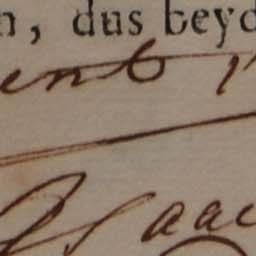 n, dus beyd
ent 1
Isaac